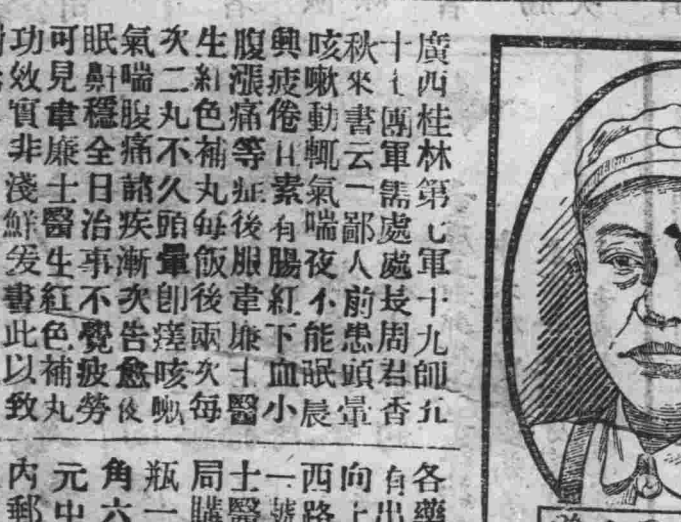 廣西桂林第七軍十九師五
十七團軍需處處長周君香
秋來書云一鄙人前患頭暈
咳嗽動輒氣喘夜不能眠晨
興疲倦且素有腸紅下血小
腹漲痛等症後服韋廉士醫
生紅色補丸每飯後兩次每
次二丸不久頭暈卽痊咳嗽
氣喘腹痛諸疾漸次告愈夜
眠鼾穩全日治事不覺疲勞
可見韋廉士醫生紅色補丸
功效實非淺鮮爰書此以致
各藥
有出
向上
西路
一號
士醫
局購
瓶一
角六
元中
內郵